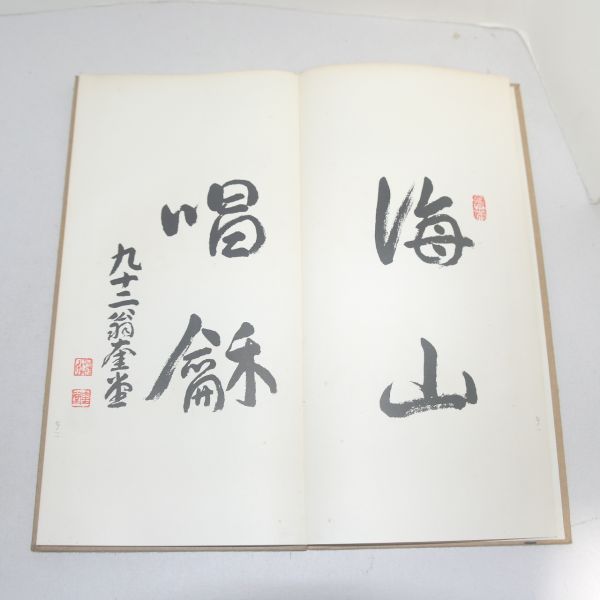 海山
唱龢
九十二翁奎堂